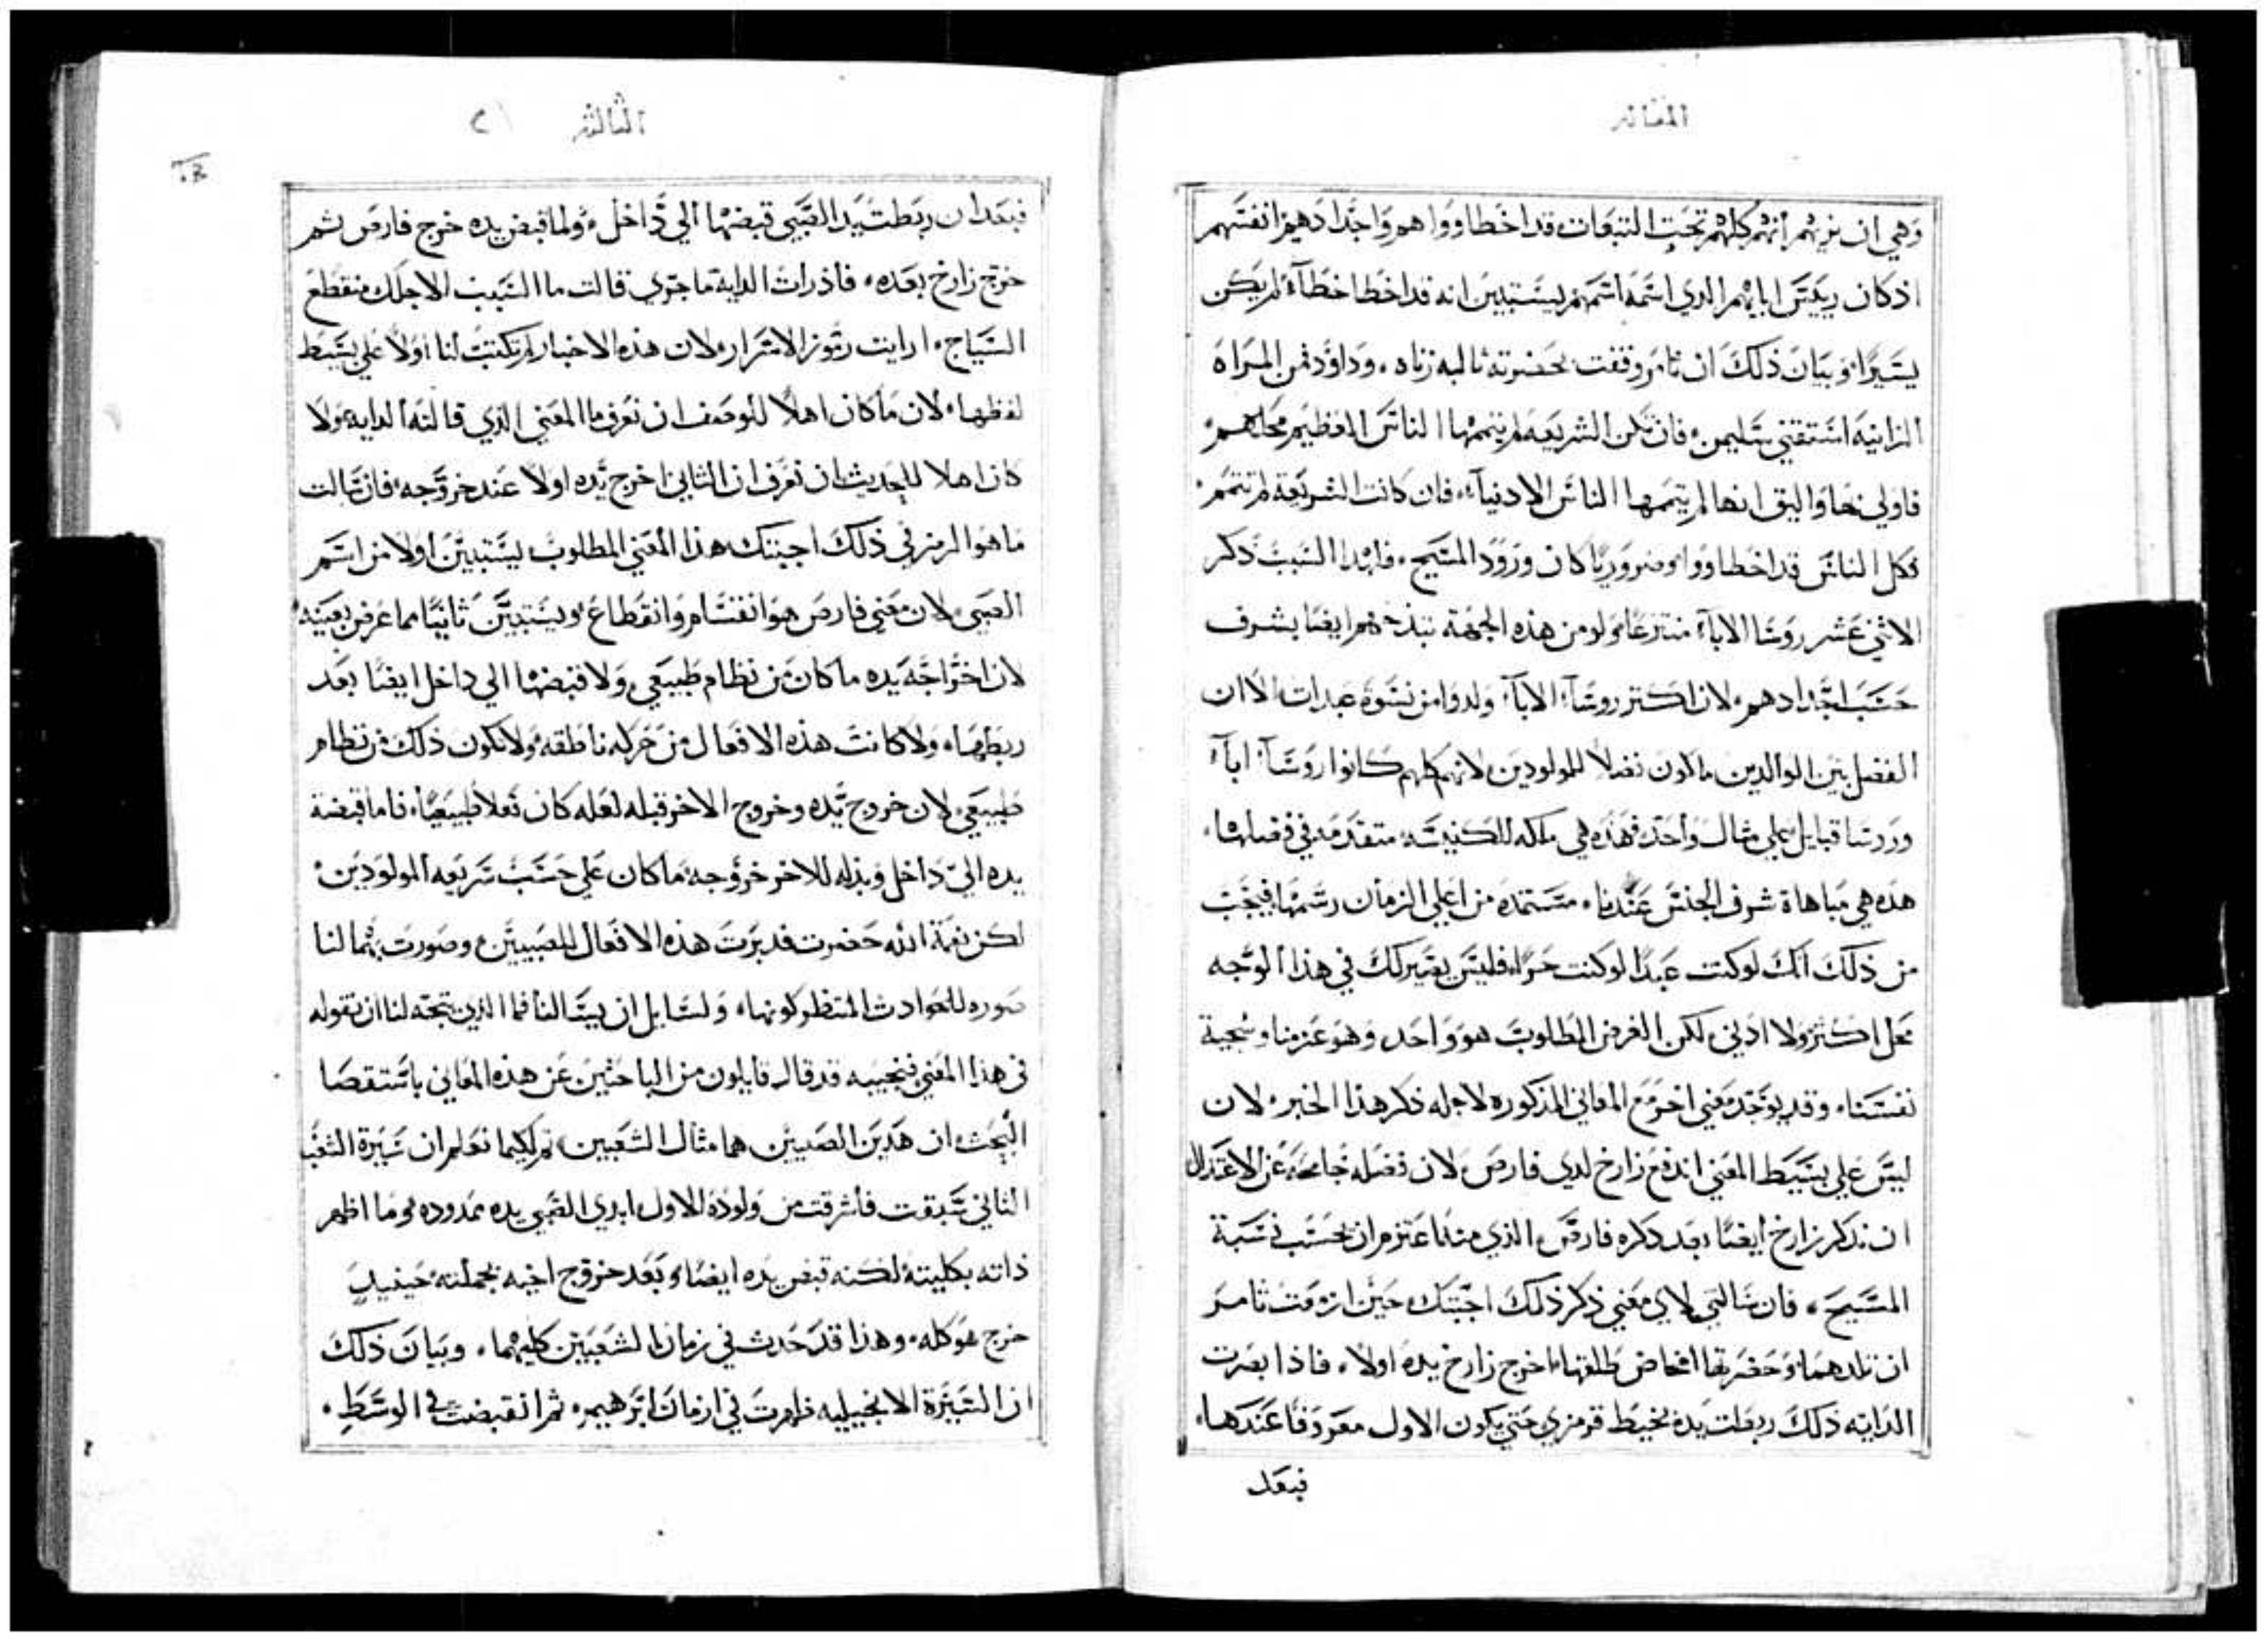 المقاله
وهي ان نريهم انهم كلهم تحت التبعات قد اخطاووا هم واجدادهم انفسهم
اذ كان رييس ابايهم الدي اسمه اسمهم ليستبين انه قد اخطا خطآء لم يكن
يسيرا، وبيان ذلك ان ثامر وقفت بحضرته ثالبه زناه، وداود من المراه
الزانيه استقني سليمن، فان تكن الشريعه لم يتممها الناس العظيم محلهم،
فاولي بها واليق انها لم يتممها الناس الادنيآء، فان كانت الشريعة لم تتمم،
فكل الناس قد اخطاووا، وضروريا كان ورود المسيح، فلهدا السبب ذكر
الاثني عشر روسا الابآء منتزعا ولو من هذه الجهة تبذخهم ايضا بشرف
حسب اجدادهم، لان اكتر روسآء الابآء ولدوا من نسوة عبدات الا ان
الفصل بين الوالدين ما كون فصلا للمولودين لانهم كلهم كانوا روسآء ابآء
وروسا قبايل علي مثال واحد، فهذه هي ملكه للكنيسه متقدمه في فضلها،
هذه هي مباهاة شرف الجنس عندنا، مستمده من اعلي الزمان رسمها، فيجب
من ذلك انك لو كنت عبدا لو كنت حرا، فليس يصير لك في هذا الوجه
محل اكثر ولا ادني، لكن الغرض المطلوب هو واحد، وهو عزمنا وسجية
نفسنا، وقد يوجد معني اخر مع المعاني المذكوره لاجله ذكر هذا الخبر، لان
ليس علي بسيط المعني اندفع زارخ لدي فارص، لان فضله جامحه عن الاعتدال
ان ندكر زارخ ايضا بعد دكره فارص الذي منه اعتزم ان يحسب نسبة
المسيح، فان سالتني لاي معني ذكر ذلك اجبتك حين ازمعت ثامر
ان تلدهما، وحضرتها امخاض طلقها، اخرج زارخ يده اولا، فاذا بصرت
الدايه ذلك ربطت يده بخيط قرمزي حتي يكون الاول معروفا عندها،
فبعد
الثالثه
فبعد ان ربطت يد الصبي قبضها الي داخل، ولما قبض يده خرج فارص ثم
خرج زارخ بعده، فاذ رات الداية ما جري قالت ما السبب لاجلك منقطع
السياج، ارايت رموز الاسرار، لان هذه الاخبار لم تكتب لنا اولا علي بسيط
لفظها، لان ما كان اهلا للوصف ان نعرف ما المعني الذي قالته الدايه، ولا
كان اهلا للحديث ان نعرف ان الثاني اخرج يده اولا عند خروجه، فان سالت
ما هو الرمز في ذلك اجبتك هذا المعني المطلوب ليستبين اولا من اسم
الصبي، لان معني فارص هو انفسام وانقطاع، ويستبين ثانيا مما عرض بعينه،
لان اخراجه يده ما كان من نظام طبيعي، ولا قبضها الي داخل ايضا بعد
ربطها، ولا كانت هذه الافعال من حركه ناطقه، ولا يكون ذلك من نظام
طبيعي، لان خروج يده وخروج الاخر قبله لعله كان فعلا طبيعيا، فاما قبضة
يده الي داخل وبذله للاخر خروجه، ما كان علي حسب شريعه المولودين،
لكن نعمة الله حضرت فدبرت هذه الافعال للصبيين، وصورت بهما لنا
صوره للحوادث المنتظر كونها، ولسايل ان يسالنا فما الذي يتجه لنا ان نقوله
في هذا المعني فنجيبه قد قال قايلون من الباحثين عن هذه المعاني باستقصا
البحث، ان هدين الصبيين هما مثال الشعبين، ثم لكيما نعلم ان سيرة الشعب
الثاني سبقت فاشرقت من ولودة الاول ابدي الصبي يده ممدوده، وما اظهر
ذاته بكليتة، لكنه قبض يده ايضا، وبعد خروج اخيه بجملته حينيد
خرج هو كله، وهذا قد حدث في زمان الشعبين كليهما، وبيان ذلك
ان السيرة الانجيليه ظهرت في ازمان ابرهيم، ثم انقبضت في الوسط،